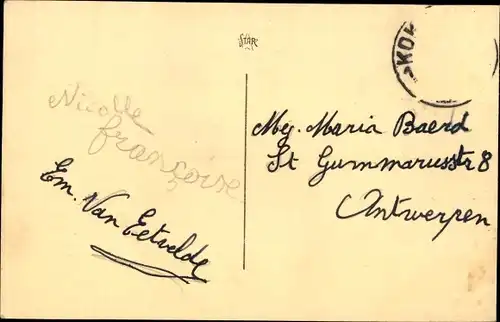 STAR
KOK
Nicolle
françoise
Em. Van Eetvelde
Mej. Maria Baerd
St Gummarusstr 8
Antwerpen